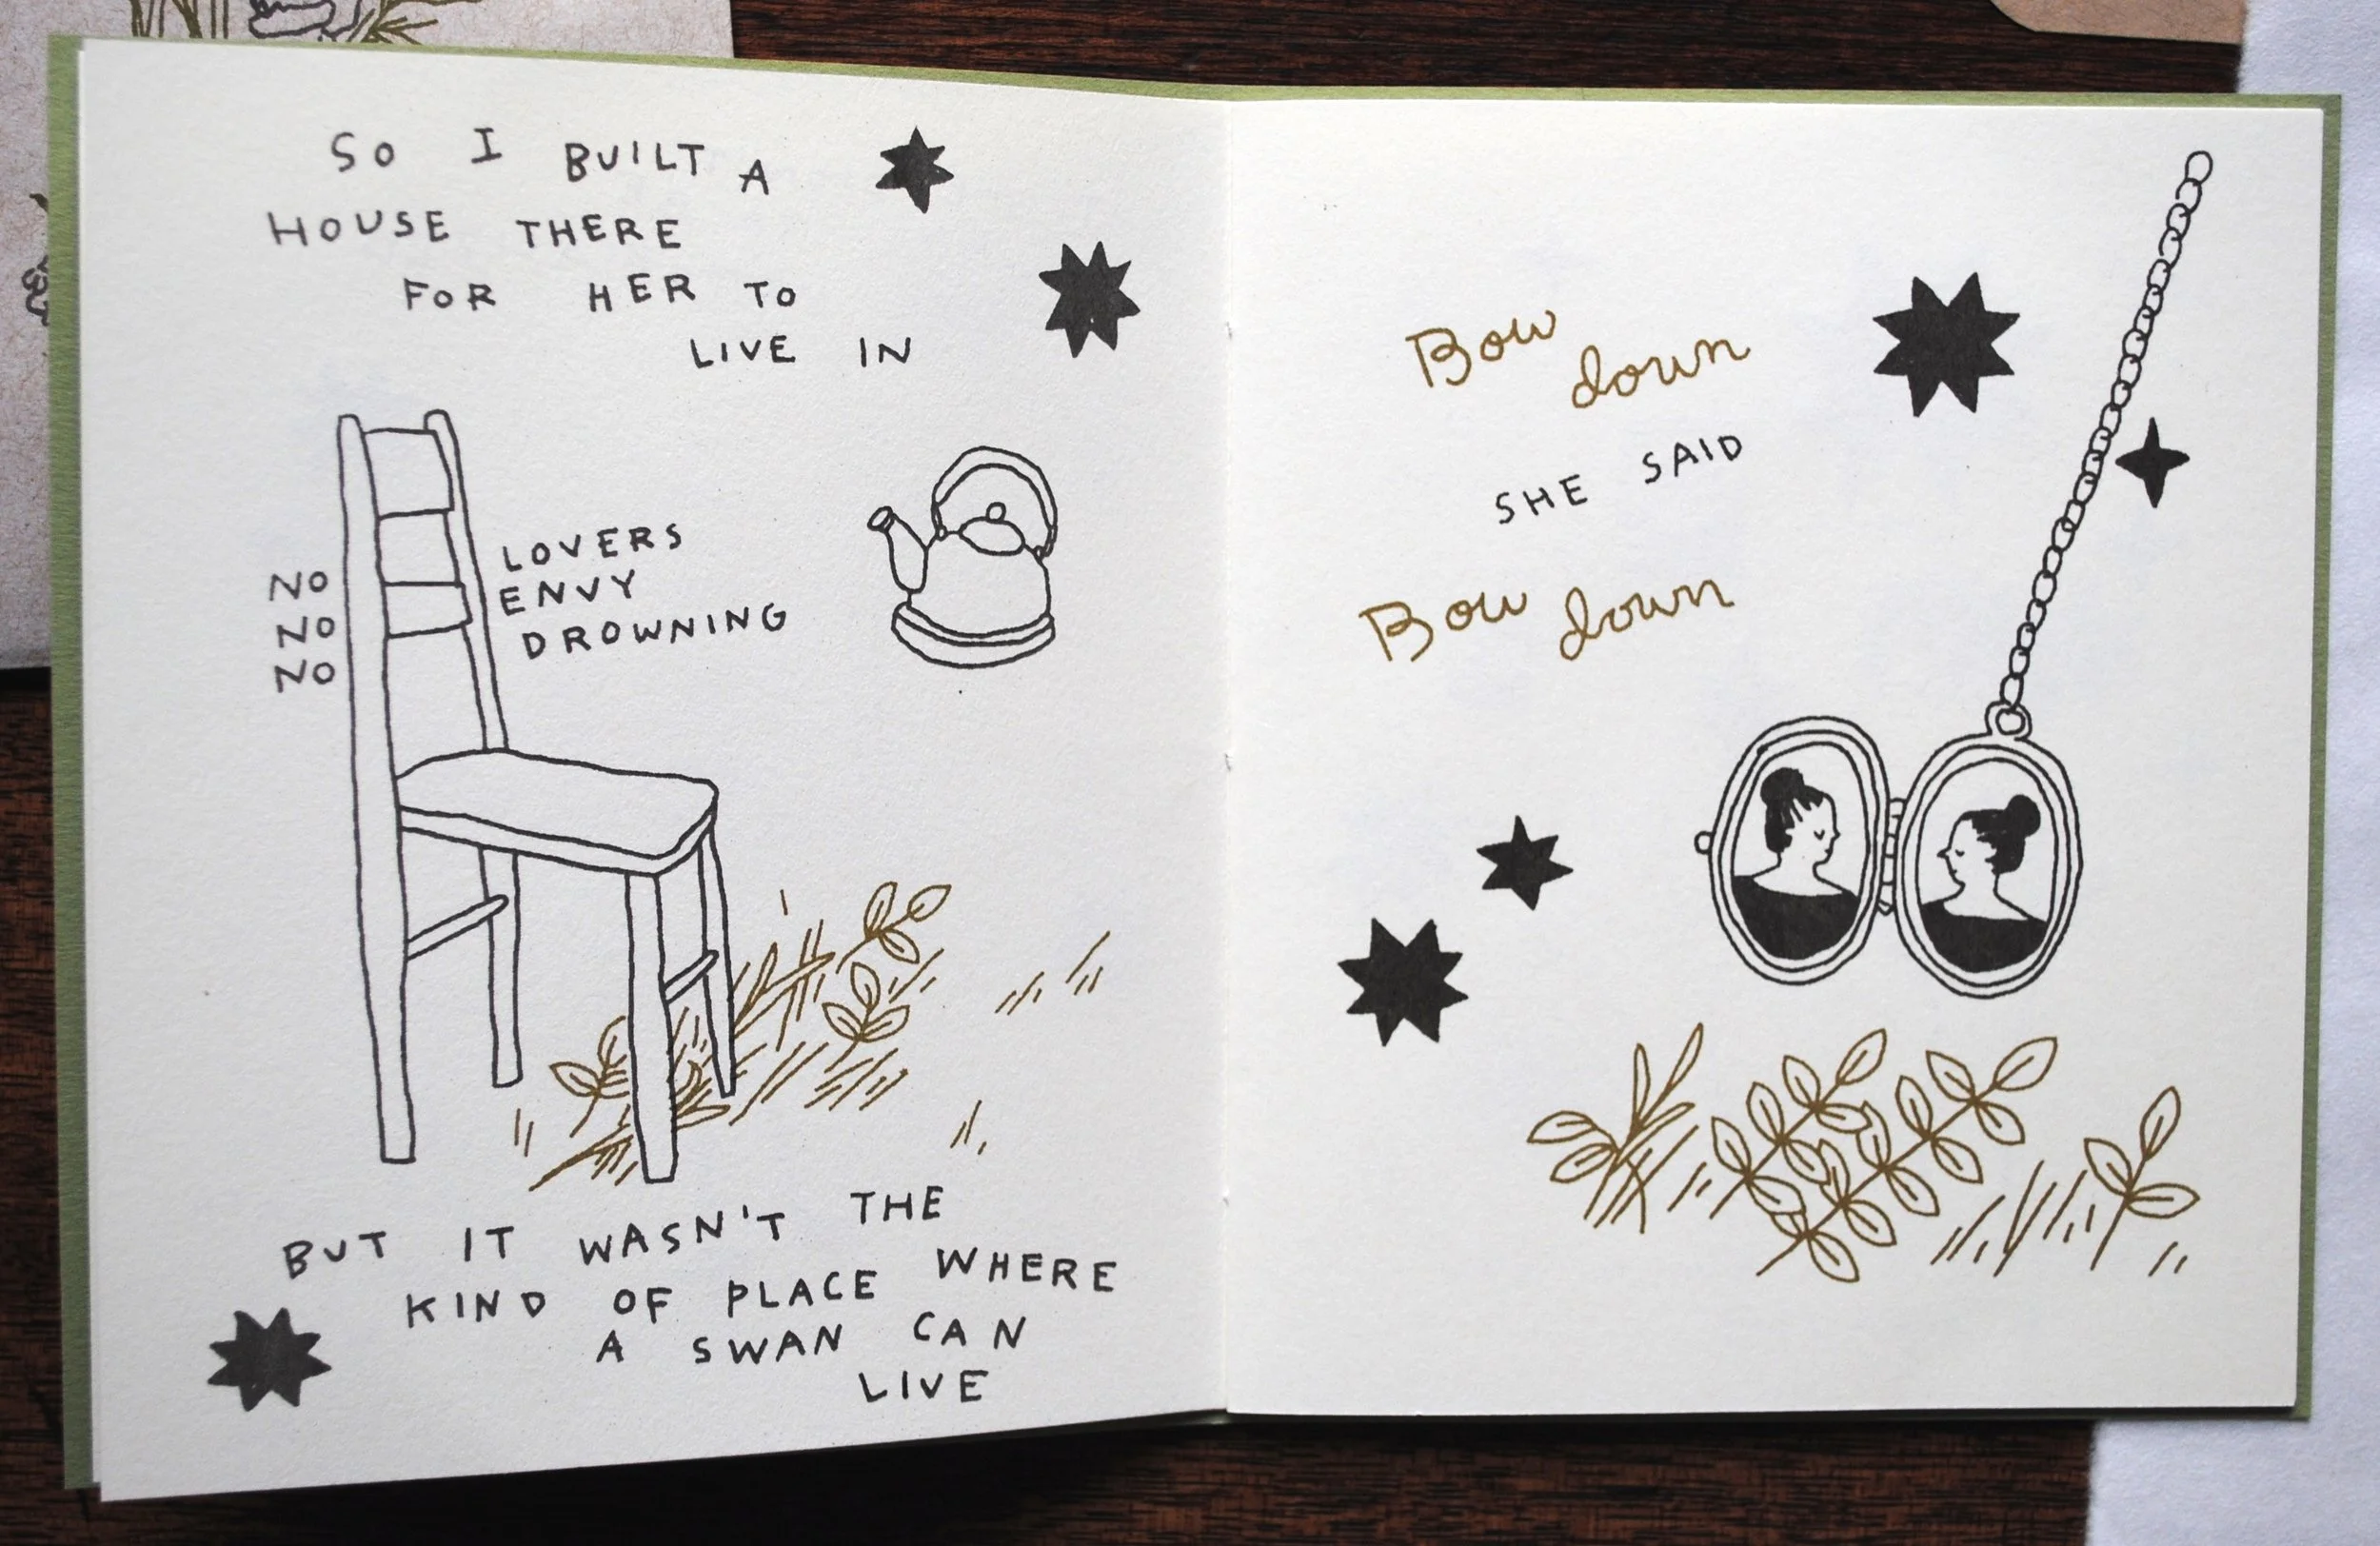 SO I BUILT A
HOUSE THERE
FOR HER TO
LIVE IN
NO
NO
NO
LOVERS
ENVY
DROWNING
BUT IT WASN'T THE
KIND OF PLACE WHERE
A SWAN CAN
LIVE
Bow
down
SHE SAID
Bow down